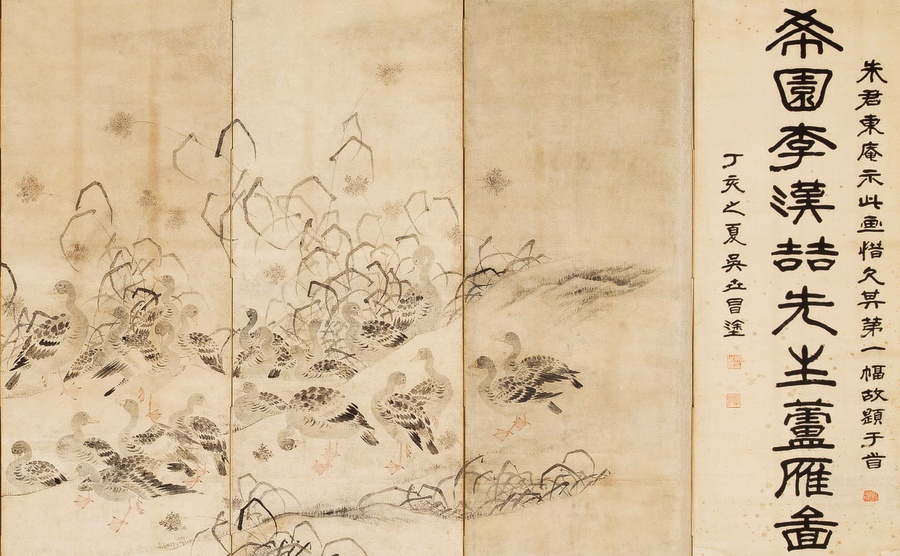 朱君東庵示此画惜欠其第一幅故題于首
希園李漢喆先生蘆雁啚
丁亥之夏吳世昌塗